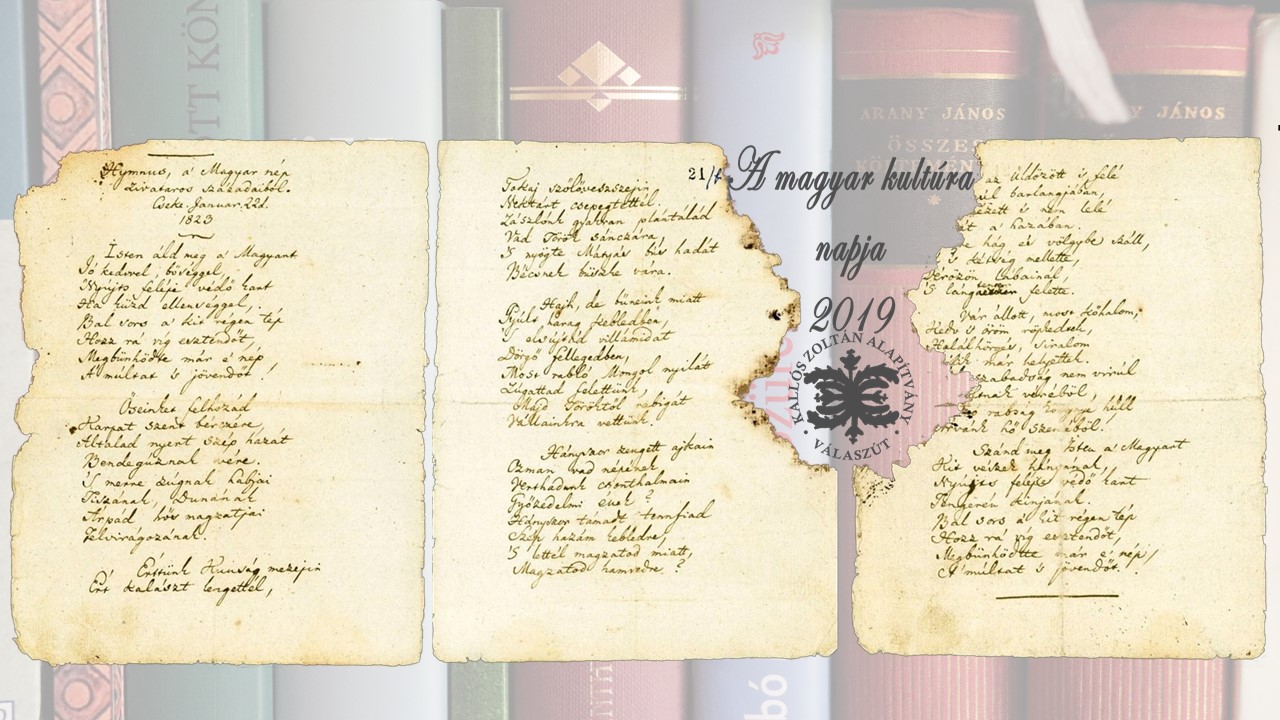 Hymnus, a' Magyar nép
Zivataros századaiból.
Cseke. Januar. 22d.
1823
Isten áld meg a' Magyart
Jó kedvvel, bőséggel,
Nyújts feléje védő kart
Ha küzd ellenséggel,
Bal sors a' kit régen tép
Hozz rá víg esztendőt,
Megbünhödte már e' nép
A' múltat 's jövendőt!
Őseinket felhozád
Kárpát szent bérczére,
Általad nyert szép hazát
Bendegúznak vére.
'S merre zúgnak habjai
Tiszának, Dunának
Árpád hős magzatjai
Felvirágozának.
Értünk Kunság mezején
Ért kalászt lengettél,
21/1
Tokaj szőlővesszején
Nektárt csepegtettél.
Zászlónk gyakran plántálád
Vad Török sánczára,
'S nyögte Mátyás bús hadát
Bécsnek büszke vára.
Hajh, de bűneink miatt
Gyúlt harag kebledben,
'S elsújtád villámidat
Dörgő fellegedben,
Most rabló Mongol nyilát
Zúgattad felettünk,
Majd Töröktől rabigát
Vállainkra vettünk.
Hányszor zengett ajkain
Ozman vad népének
Vert hadunk csonthalmain
Győzedelmi ének?
Hányszor támadt tennfiad
Szép hazám kebledre,
'S lettél magzatod miatt,
Magzatod hamvedre?
az üldözött 's felé
barlangjában,
nézett 's nem lelé
a' hazában.
hág és völgybe száll,
's kétség mellette,
Vérözön lábainál,
'S lángtenger felette.
Vár állott, most kőhalom,
Kedv 's öröm röpkedtek,
Halálhörgés, siralom
már helyettek.
szabadság nem virúl
véréből,
rabság könnye hull
hő szeméből!
Szánd meg Isten a' Magyart
Kit vészek hányának,
Nyújts feléje védő kart
Tengerén kínjának.
Bal sors a' kit régen tép
Hozz rá víg esztendőt,
Megbünhödte már e' nép,
A' múltat 's jövendőt.
A magyar kultúra
napja
2019
KALLÓS ZOLTÁN ALAPÍTVÁNY
· VÁLASZÚT ·
OTT KÖN
ARANY JÁNOS
ÖSSZES
ARANY JÁNOS
bó